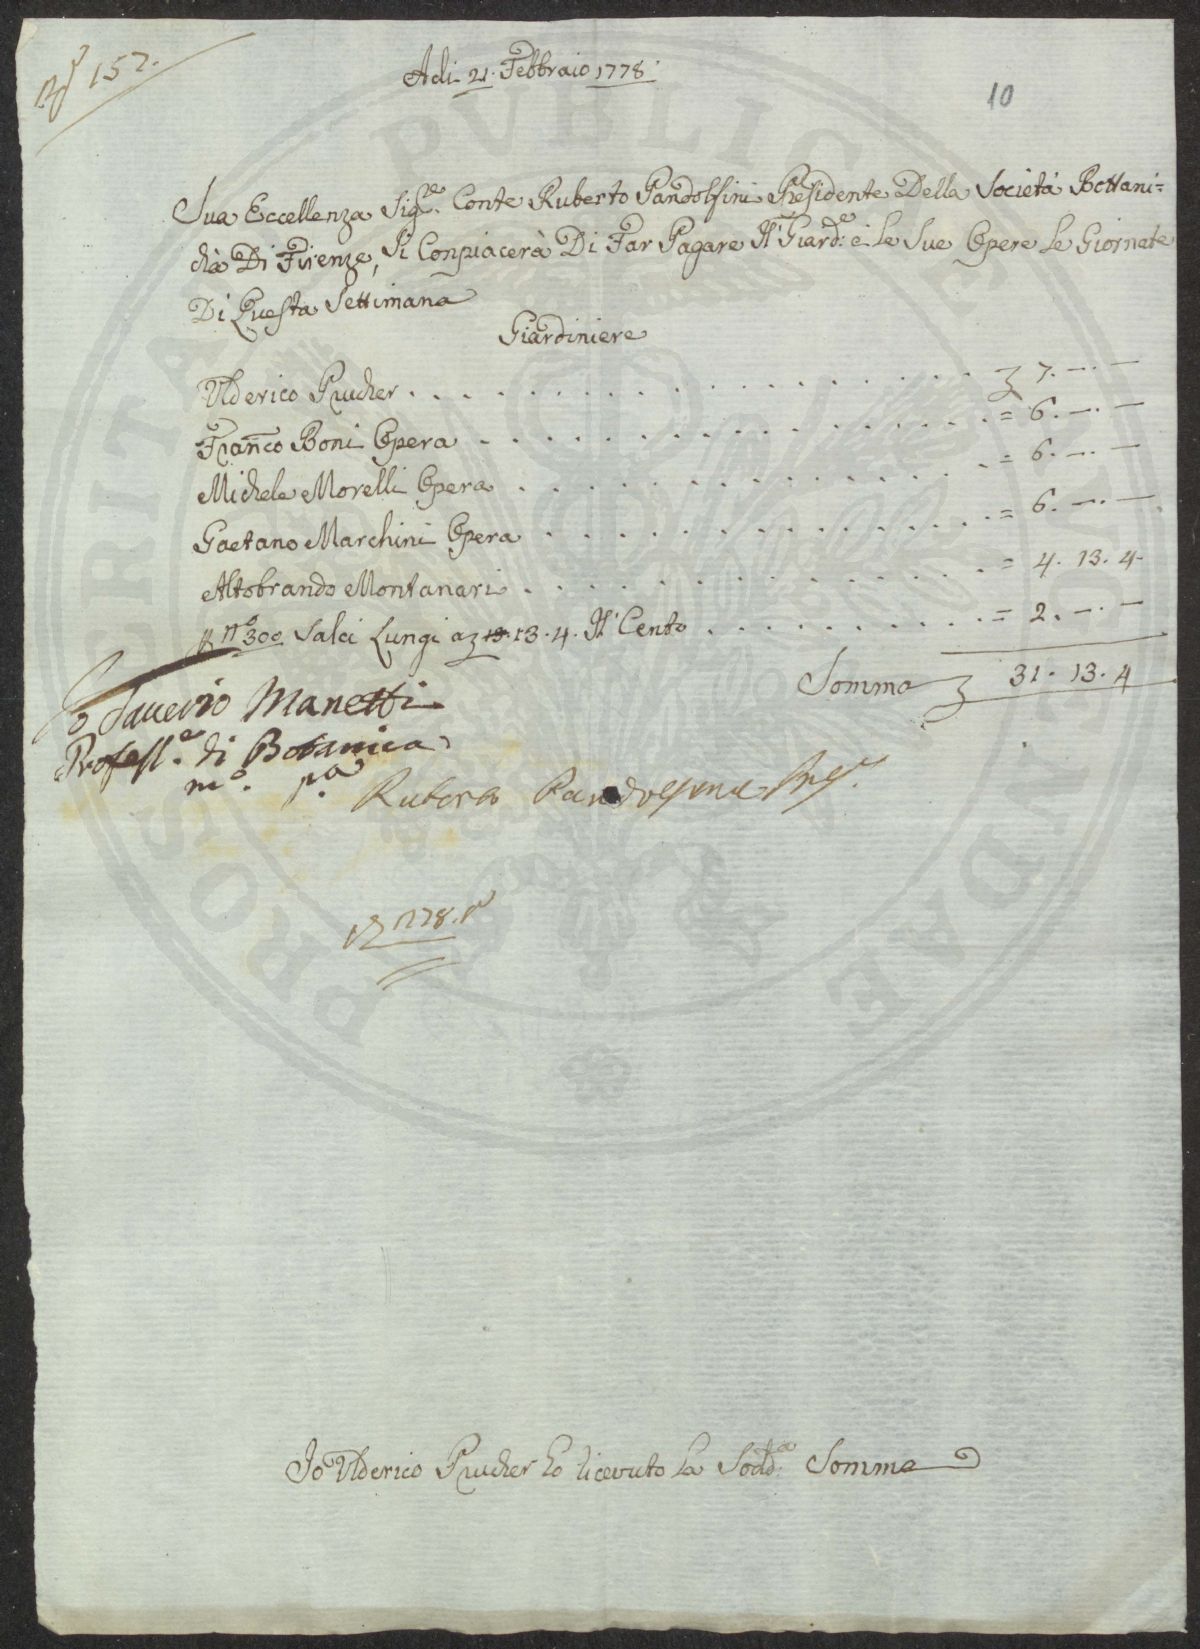 157.
Adi 21. Febbraio 1778
10
Sua Eccellenza Sig.re Conte Ruberto Pandolfini Presidente Della Società Bottani=
cha Di Firenze, Si Conpiacerà Di Far Pagare Il Giard.e e Le Sue Opere Le Giornate
Di Questa Settimana
Giardiniere
Ulderico Prucher . . . . . . . . . . . . . . . . . . . . . 7. — . —
Franco Boni Opera . . . . . . . . . . . . . . . . . . . = 6. — . —
Michele Morelli Opera . . . . . . . . . . . . . . . . = 6. — . —
Gaetano Marchini Opera . . . . . . . . . . . . . . . = 6. — . —
Altobrando Montanari . . . . . . . . . . . . . . . = 4. 13. 4
n.o 300 Salci Lungi a 13. 4. Il Cento . . . . . . . . . . = 2. — . —
Somma 31. 13. 4
Io Saverio Manetti
Profess.e di Botanica
m.o p.a
Ruberto Pandolfini
1778.
Io Ulderico Prucher ho ricevuto La Sodd.a Somma
PROSPERITATI PUBLICAE AUGENDAE